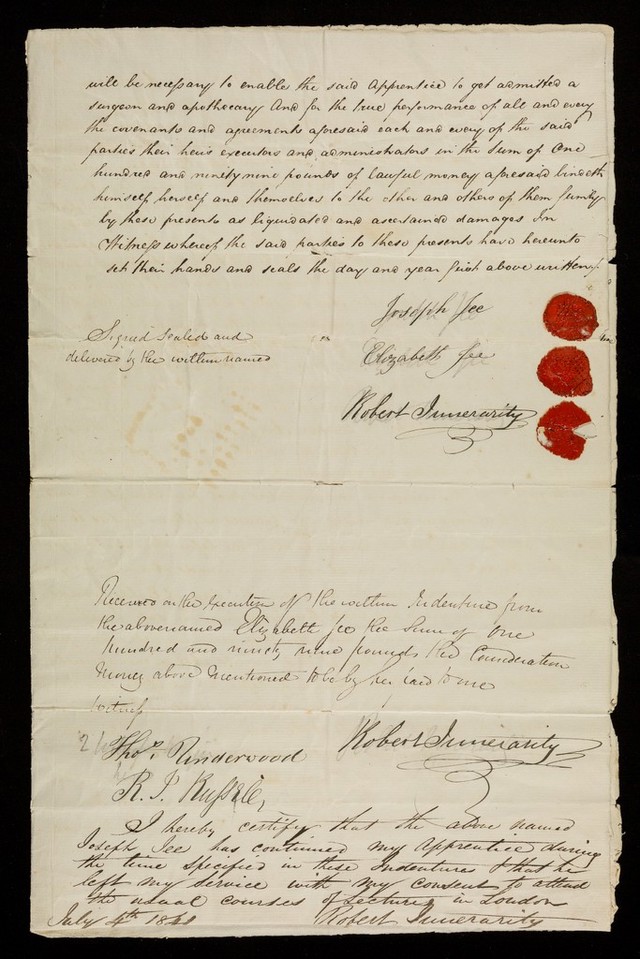 will be necessary to enable the said Apprentice to get admitted a
surgeon and apothecary And for the true performance of all and every
the covenants and agreements aforesaid each and every of the said
parties their heirs executors and administrators in the sum of One
hundred and ninety nine pounds of lawful money aforesaid bindeth
himself herself and themselves to the other and others of them firmly
by these presents as liquidated and ascertained damages In
Witness whereof the said parties to these presents have hereunto
set their hands and seals the day and year first above written
Joseph Jee
Signed sealed and
delivered by the within named
Elizabeth Jee
Robert Innerarity
Received on the Execution of the within Indenture from
the abovenamed Elizabeth Jee the Sum of One
hundred and ninety nine pounds the Consideration
Money above Mentioned to be by her paid to me
Witness
Robert Innerarity
Thos. Underwood
R. J. Russell,
I hereby certify that the above named
Joseph Jee has continued my Apprentice during
the time specified in these Indentures & that he
left my service with my consent to attend
the usual courses of Lectures in London
July 4th
Robert Innerarity